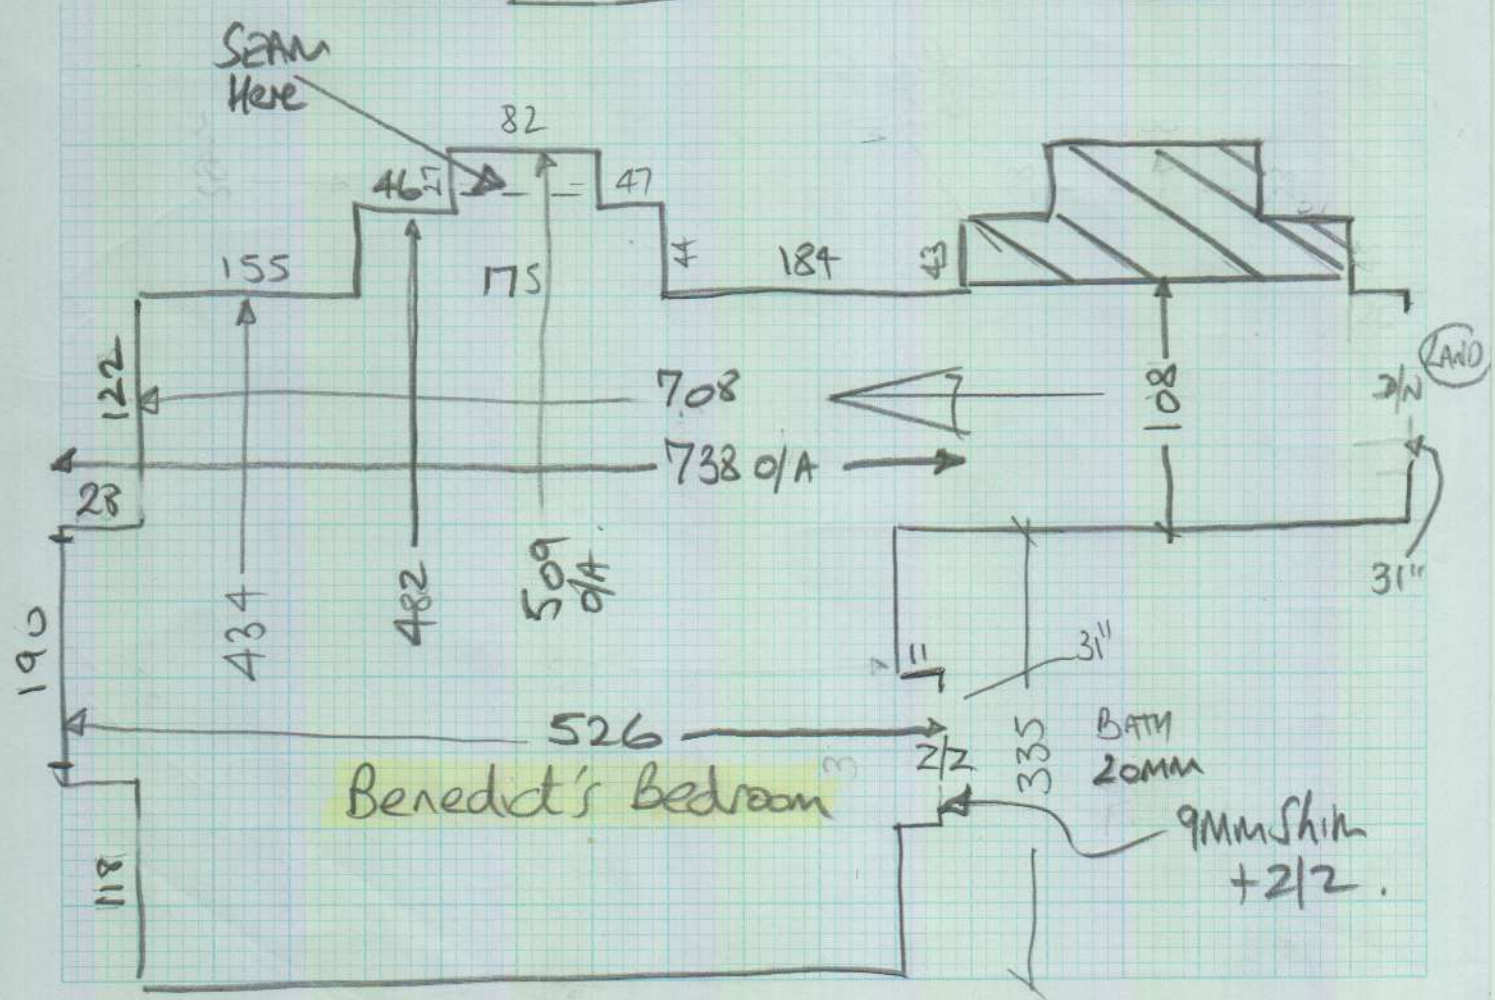 SEAM
Here
82
46
27
47
155
175
44
184
43
122
708
7
LAND
D/N
738 O/A
108
28
31"
434
482
509
O/A
190
11
31"
526
2/2
335
BATH
20MM
Benedict's Bedroom
9MM Shim
+2/2.
118